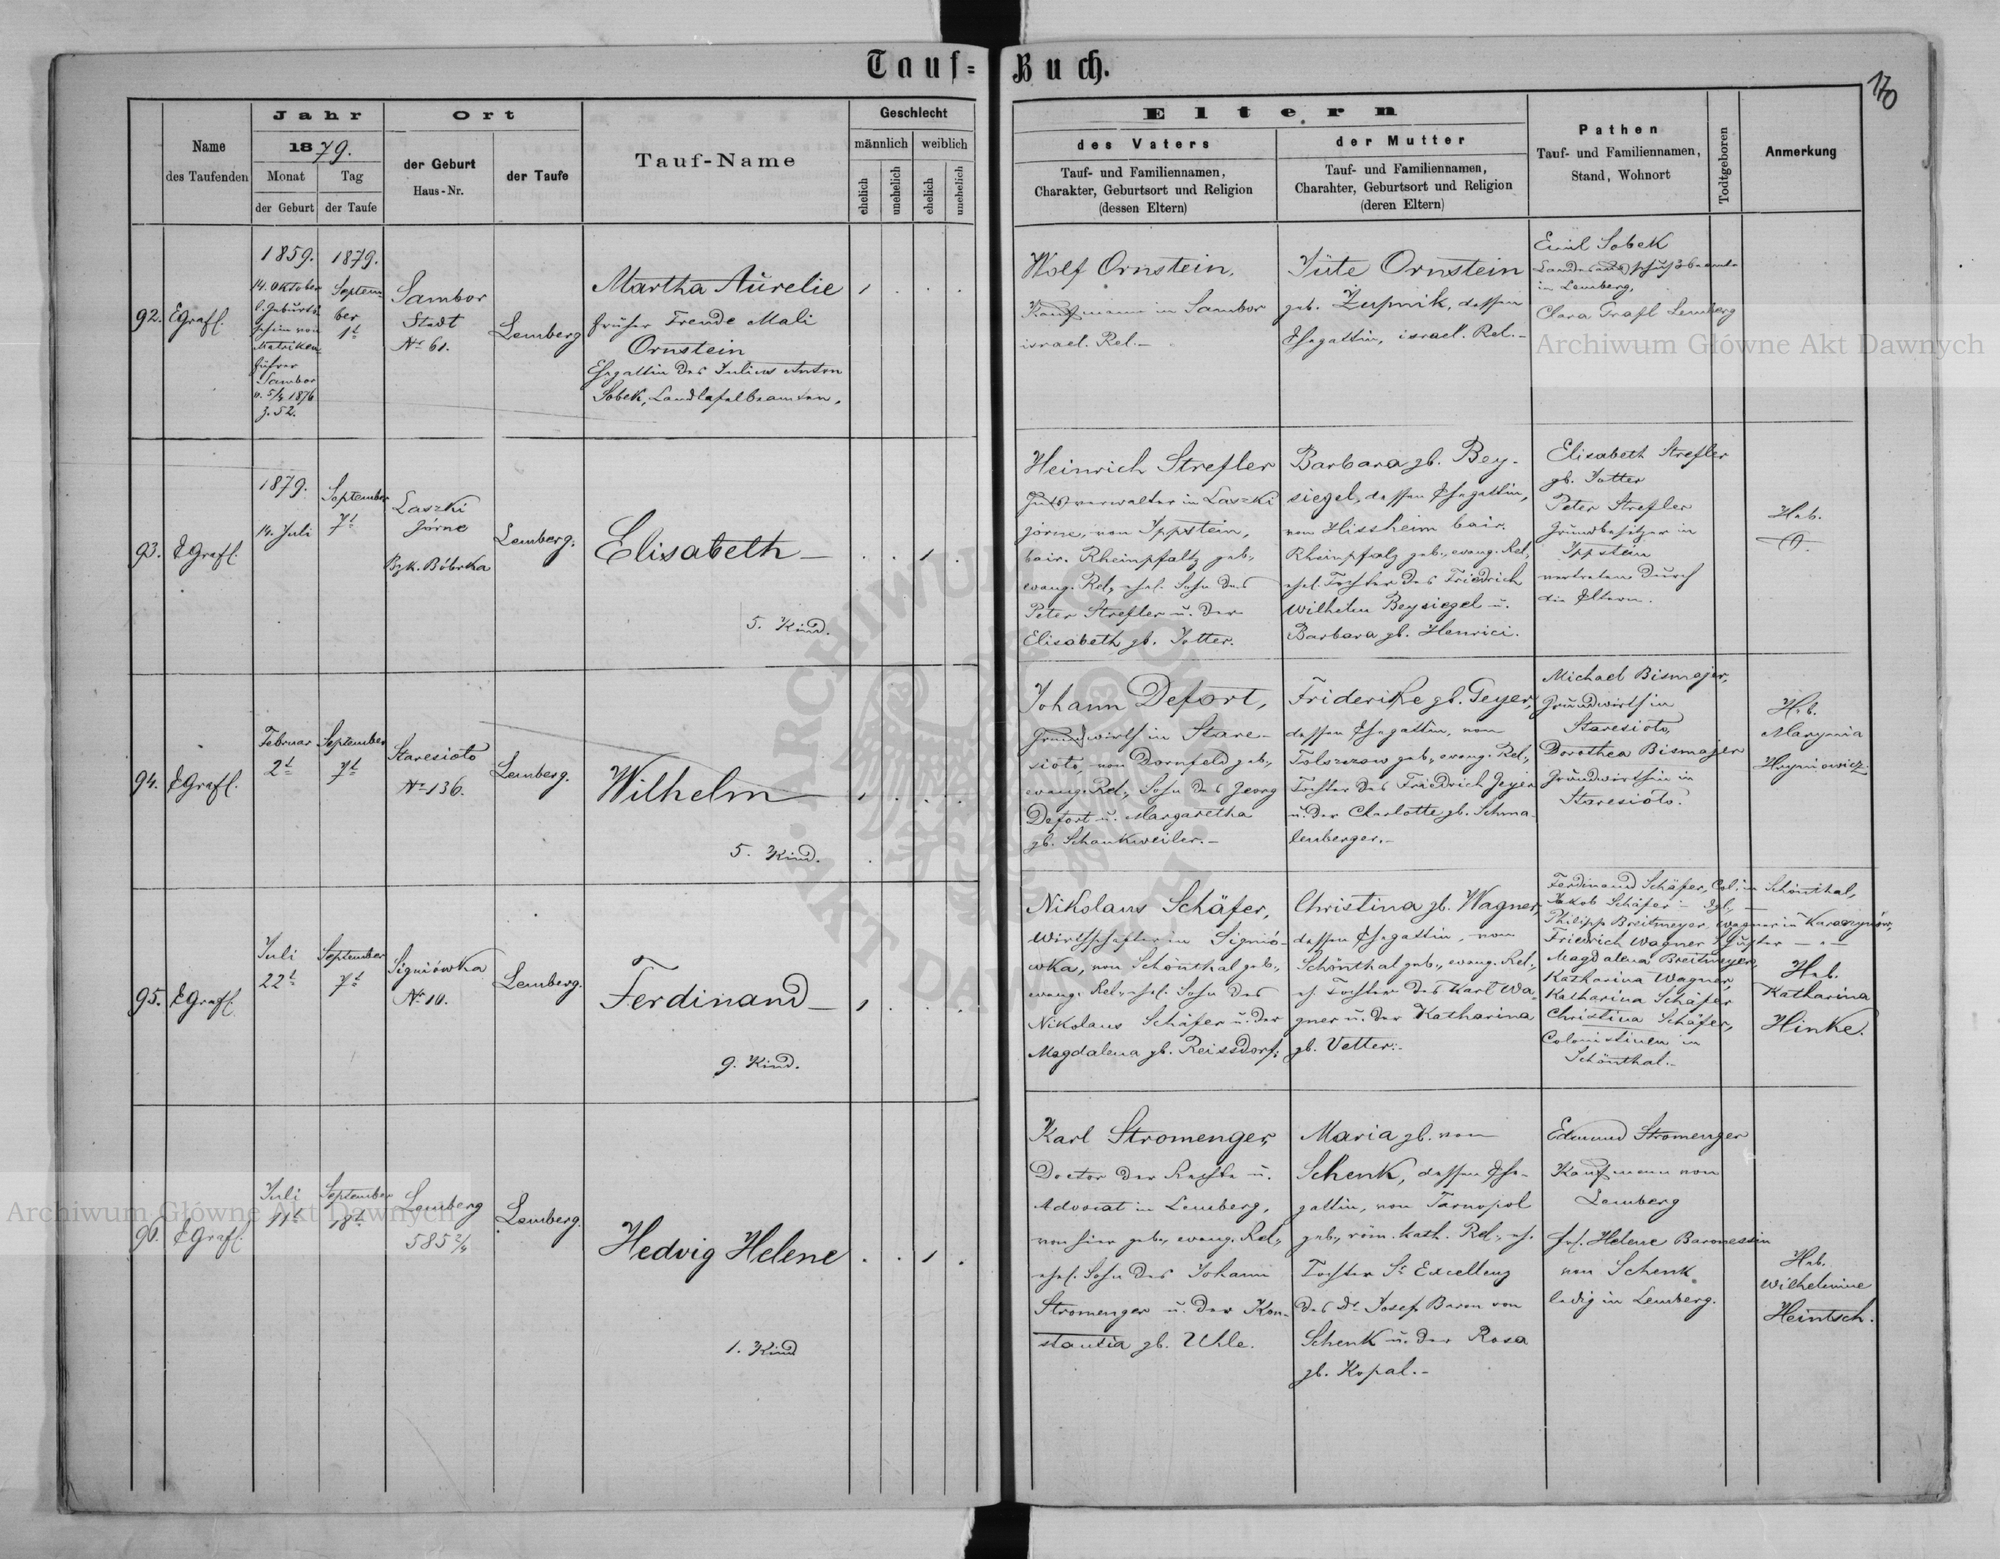 Tauf- Buch.
170
Name
des Taufenden
Jahr
1879.
Monat
der Geburt
Tag
der Taufe
Ort
der Geburt
Haus-Nr.
der Taufe
Tauf-Name
Geschlecht
männlich
weiblich
ehelich
unehelich
ehelich
unehelich
Eltern
des Vaters
Tauf- und Familiennamen,
Charakter, Geburtsort und Religion
(dessen Eltern)
der Mutter
Tauf- und Familiennamen,
Charahter, Geburtsort und Religion
(deren Eltern)
Pathen
Tauf- und Familiennamen,
Stand, Wohnort
Todtgeboren
Anmerkung
92.
EGrafl.
1859.
14. Oktober
l. Geburts-
schein von
Matriken
führer
Sambor
v. 5/4 1876
Z. 52.
1879.
Septem
ber
1t
Sambor
Stadt
Nr 61.
Lemberg
Martha Aurelie
früher Freude Mali
Ornstein
Ehegattin des Julius Anton
Sobek, Landtafelbeamten.
Wolf Ornstein,
Kaufmann in Sambor
israel. Rel.-
Jüte Ornstein
geb. Zupnik, dessen
Ehegattin, israel. Rel.-
Emil Sobek
Landesausschußbeamte
in Lemberg,
Clara Grafl Lemberg
93.
EGrafl.
1879.
14. Juli
September
7t
Laszki
górne
Bzk. Bóbrka
Lemberg.
Elisabeth
5. Kind.
Heinrich Strefler
Gutsverwalter in Laszki
górne, von Ippstein,
bair. Rheinpfaltz geb.,
evang. Rel., ehel. Sohn des
Peter Strefler u. der
Elisabeth gb. Jotter.
Barbara gb. Bey-
siegel, dessen Ehegattin,
von Hissheim bair.
Rheinpfalz geb., evang. Rel.,
ehel. Tochter des Friedrich
Wilhelm Beysiegel u.
Barbara gb. Henrici.
Elisabeth Strefler
gb. Jotter
Peter Strefler
Grundbesitzer in
Ippstein
vertreten durch
die Eltern.
Heb.
94.
EGrafl.
Februar
2t
September
7t
Staresioło
Nr 136.
Lemberg.
Wilhelm
5. Kind.
Johann Defort,
Grundwirth in Stare-
sioło, von Dornfeld geb.,
evang. Rel., Sohn des Georg
Defort u. Margaretha
gb. Schankweiler.-
Friderike gb. Geyer,
dessen Ehegattin, von
Tolszczow geb., evang. Rel.,
Tochter des Friedrich Geyer
u. der Charlotte gb. Schma-
lenberger.-
Michael Bismajer,
Grundwirth in
Staresioło,
Dorothea Bismajer
Grundwirthin in
Staresioło.
Heb.
Marynia
Hryniowicz.
95.
EGrafl.
Juli
22t
September
7t
Signiówka
Nr 10.
Lemberg.
Ferdinand
9. Kind.
Nikolaus Schäfer,
Wirthschafter in Signió-
wka, von Schönthal geb.,
evang. Rel., ehel. Sohn des
Nikolaus Schäfer u. der
Magdalena gb. Reissdorf.
Christina gb. Wagner,
dessen Ehegattin, von
Schönthal geb., evang. Rel.,
eh. Tochter des Karl Wa-
gner u. der Katharina
gb. Vetter.-
Ferdinand Schäfer, Col. in Schönthal,
Jakob Schäfer - dgl. -
Philipp Breitmeyer, Wagner in Karaczynów,
Friedrich Wagner, Schuster - " -
Magdalena Breitmeyer,
Katharina Wagner,
Katharina Schäfer
Christina Schäfer,
Colonistinen in
Schönthal.-
Heb.
Katharina
Hinke.
96.
EGrafl.
Juli
11t
September
18t
Lemberg
585 2/4
Lemberg.
Hedvig Helene
1. Kind
Karl Stromenger,
Doctor der Rechte u.
Advocat in Lemberg,
von hier geb., evang. Rel.,
ehel. Sohn des Johann
Stromenger u. der Kon-
stantia gb. Uhle.
Maria gb. von
Schenk, dessen Ehe-
gattin, von Tarnopol
geb., röm. kath. Rel., eh.
Tochter Sr Excellenz
des Dr Josef Baron von
Schenk u. der Rosa
gb. Kopal.-
Edmund Stromenger
Kaufmann von
Lemberg
Frl. Helene Baronessin
von Schenk
ledig in Lemberg.
Heb.
Wilhelmine
Heintsch.
Archiwum Główne Akt Dawnych
Archiwum Główne Akt Dawnych
ARCHIWUM GŁÓWNE AKT DAWNYCH